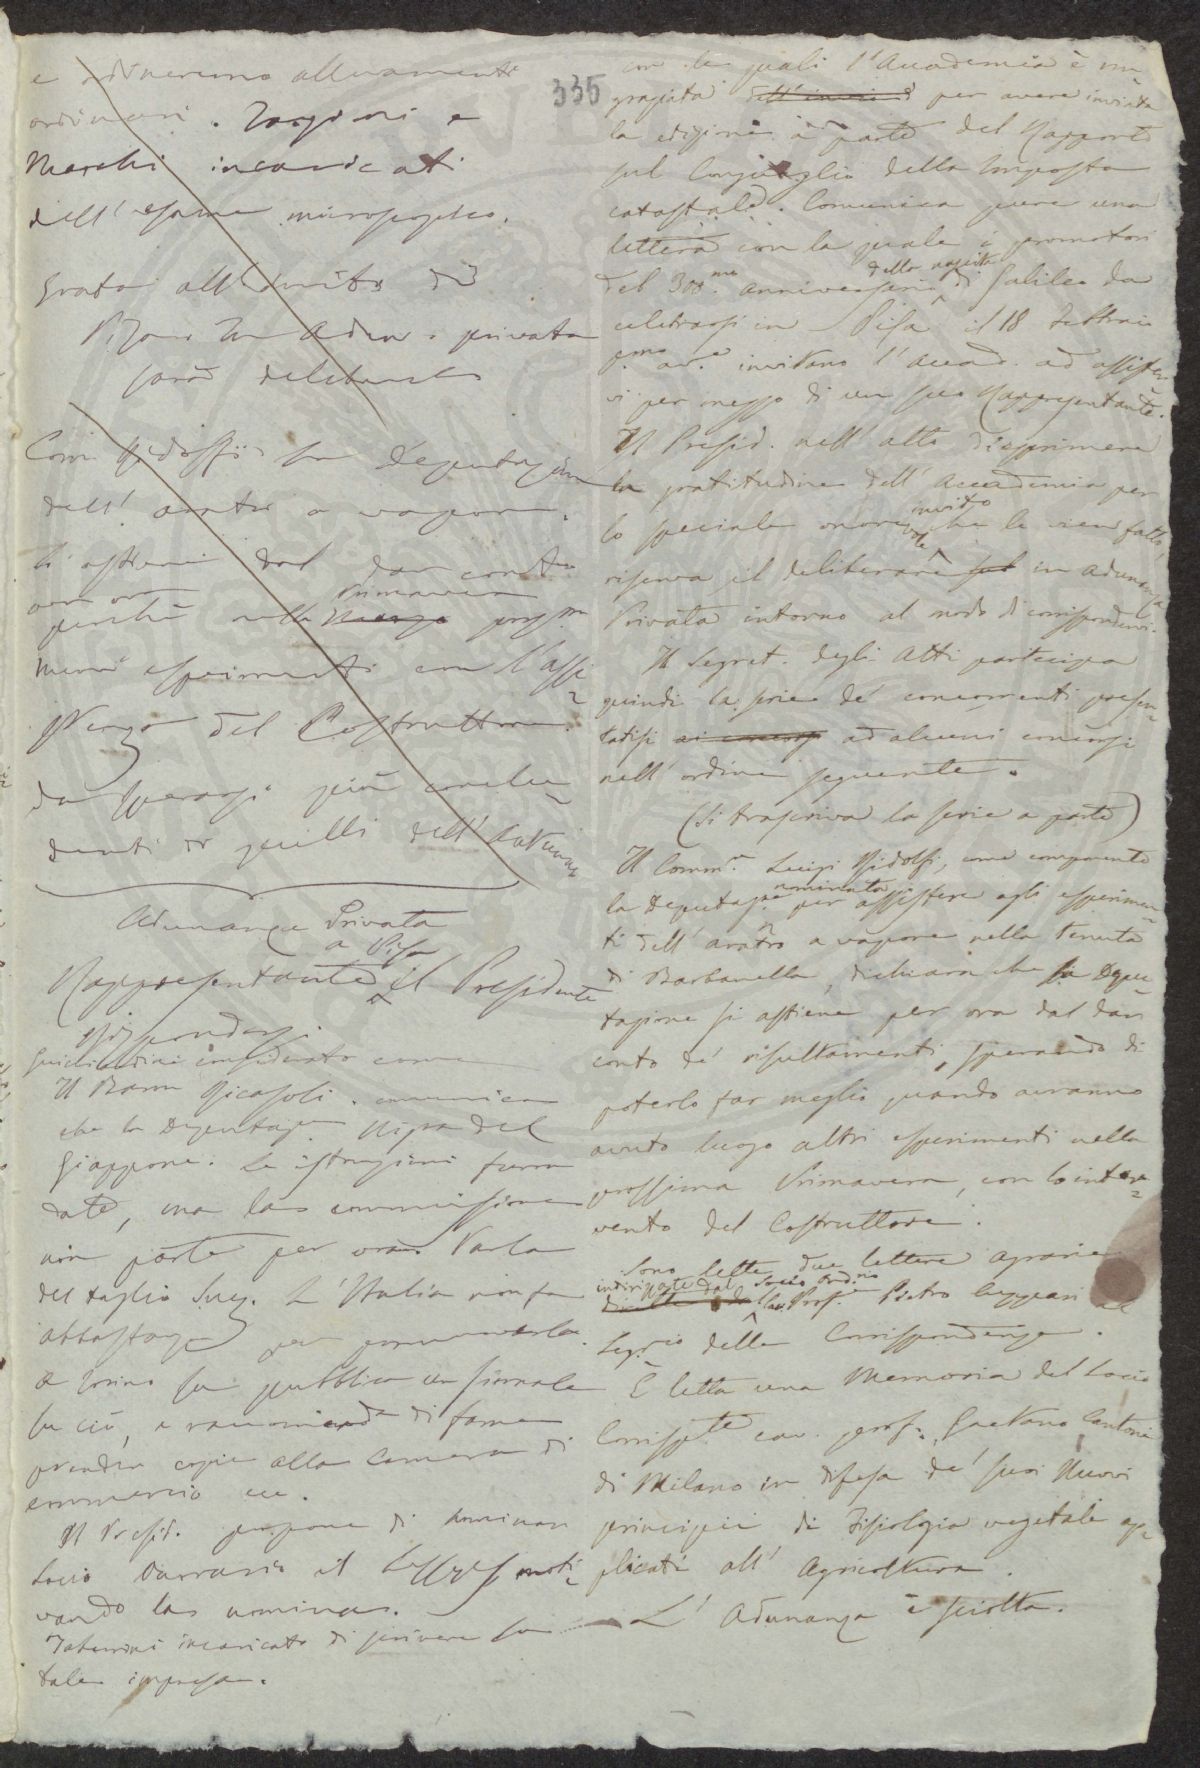 335
e
ordinari. Targioni e
Marchi incaricati
dell' esame microscopico.
Grata all' invito di
Pisa. In Adun. privata
sarà deliberato
Com. Ridolfi la Deputazione
dell' aratro a vapore.
Si astiene dal dar conto
perchè nella Primavera pross.ma
nuovi esperimenti con l'assi=
stenza del Costruttore
da sperarsi più conclu=
denti di quelli dell' Autunno
Adunanza Privata
a Pisa
Rappresentante il Presidente
Guicciardini considerato come
Il Baron Ricasoli. comunica
che la Deputaz. del
Giappone. Le istruzioni furon
date, ma la commissione
non parte per ora. Parla
del taglio Suez. L' Italia non fa
abbastanza per
A Torino si pubblica un giornale
su ciò, e raccomanda di farne
prender copie alla Camera di
commercio ecc.
Il Presid. propone di nominar
Socio Onorario il Lesseps moti=
vando la nomina.
incaricato di scrivere su
tale impresa.
con le quali l'Accademia è rin=
graziata per avere inviata
la edizione a parte del Rapporto
sul Conguaglio della Imposta
catastale. Comunica pure una
lettera con la quale i promotori
del 300.mo anniversario della nascita di Galileo da
celebrarsi in Pisa il 18 Febbraio
p.mo av.e invitano l'Accad. ad assister=
vi per mezzo di un suo Rappresentante.
Il Presid. nell' atto di esprimere
la gratitudine dell' Accademia per
lo speciale onorevole invito che le vien fatto,
riserva il deliberare in Adunanza
Privata intorno al modo di corrispondervi.
Il Segret. degli Atti partecipa
quindi la serie de' concorrenti presen=
tatisi ai concorsi ad alcuni concorsi
nell' ordine seguente.
(Si trascriva la serie a parte)
Il Comm.r Luigi Ridolfi, come componente
la Deputaz.e nominata per assistere agli esperimen=
ti dell' aratro a vapore nella Tenuta
di Barbanella, dichiara che la Depu
tazione si astiene per ora dal dar
conto de' resultamenti, sperando di
poterlo far meglio quando avranno
avuto luogo altri esperimenti nella
prossima Primavera, con lo inter=
vento del Costruttore.
Sono lette due lettere agrarie
indirizzate dal Socio Ord.rio Cav. Prof.e Pietro Cuppari al
Segr.rio delle Corrispondenze.
È letta una Memoria del Socio
Corrisp.te cav. prof.e Gaetano Cantoni
di Milano in difesa de' suoi Nuovi
principii di Fisiologia vegetale ap=
plicati all' Agricoltura.
L' Adunanza è sciolta.